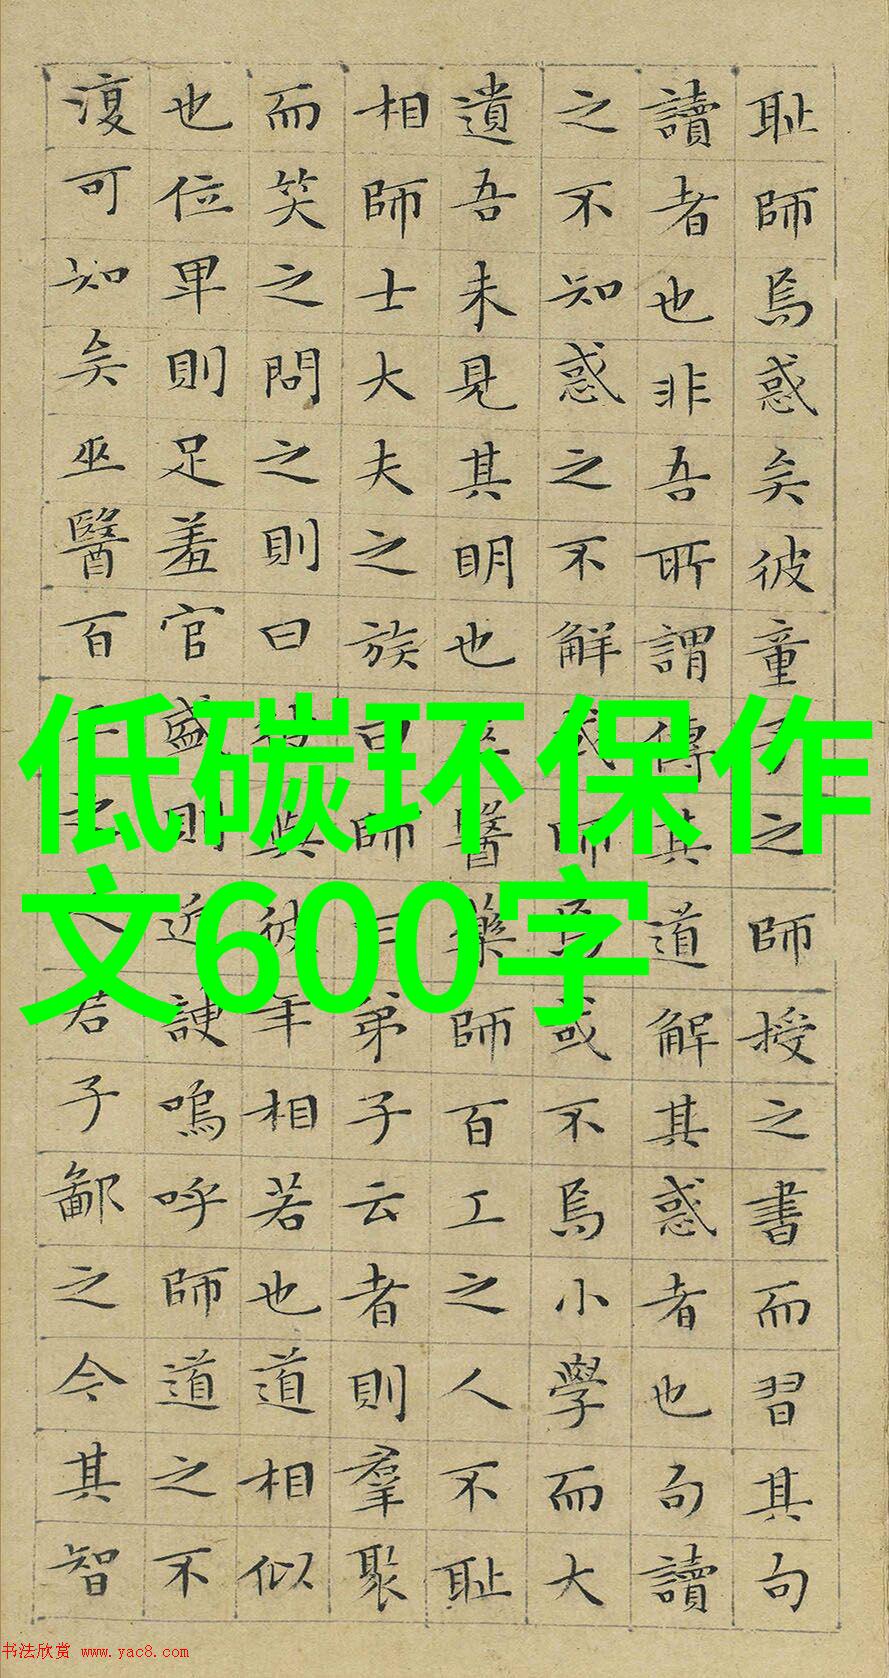 耻師焉惑矣彼童子之師授之書而習其句
讀者也非吾所謂傳其道解其惑者也句讀
之不知惑之不解或師焉或不焉小學而大
遺吾未見其明也巫醫藥師百工之人不耻
相師士大夫之族曰師曰弟子云者則羣聚
而笑之問之則曰彼與彼年相若也道相似
也位卑則足羞官盛則近諛嗚呼師道之不
復可知矣巫醫百工之人君子鄙之今其智
低碳环保作
文600字
书法欣赏 www.yac8.com